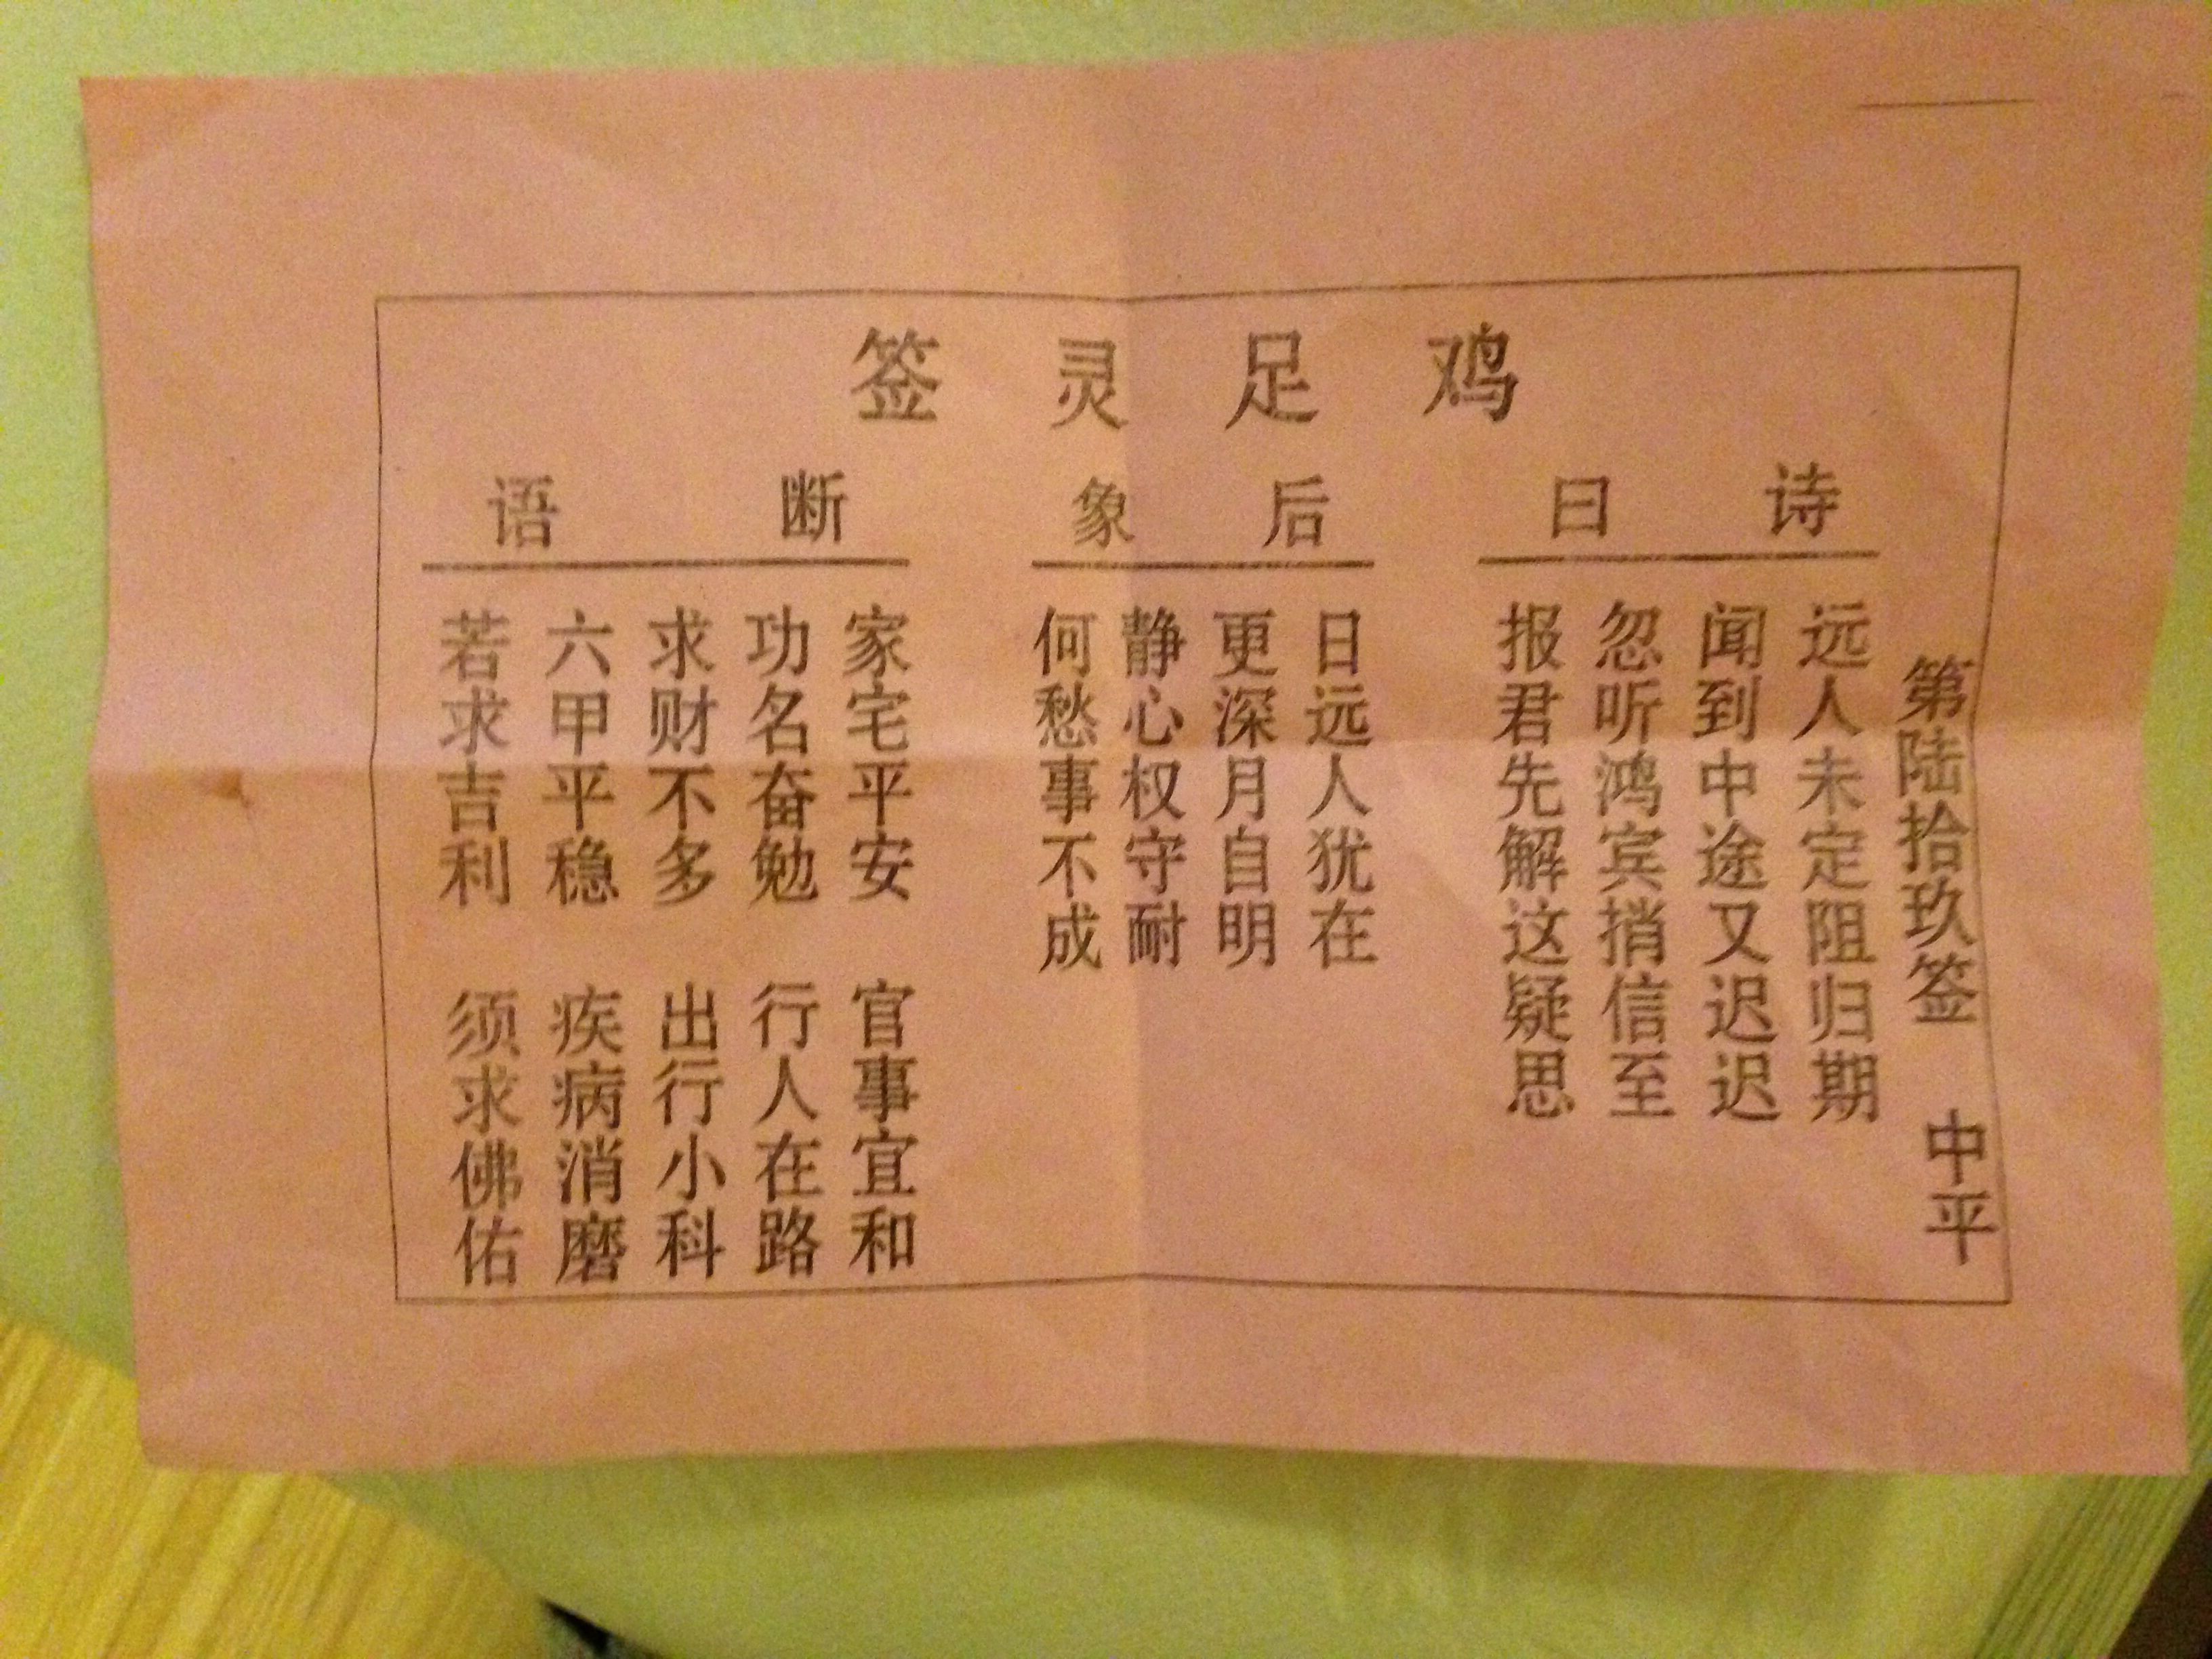 鸡足灵签
第陆拾玖签 中平
诗曰
远人未定阻归期
闻到中途又迟迟
忽听鸿宾捎信至
报君先解这疑思
后象
日远人犹在
更深月自明
静心权守耐
何愁事不成
断语
家宅平安 官事宜和
功名奋勉 行人在路
求财不多 出行小科
六甲平稳 疾病消磨
若求吉利 须求佛佑